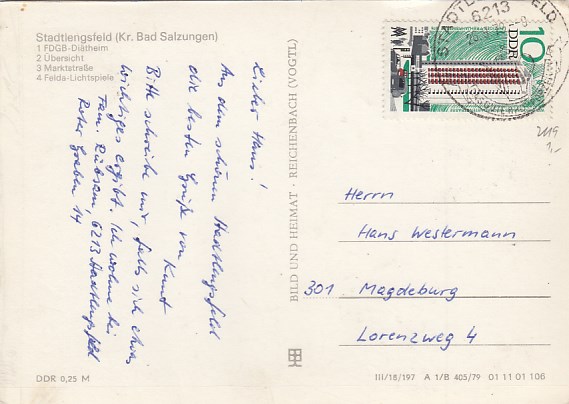 Stadtlengsfeld (Kr. Bad Salzungen)
1 FDGB-Diätheim
2 Übersicht
3 Marktstraße
4 Felda-Lichtspiele
Lieber Hans!
Aus dem schönen Stadtlengsfeld
die besten Grüße von
Kurt
Bitte schreibe mir, falls sich etwas
wichtiges ergibt. Ich wohne bei
Fam. Rübsam, 6213 Stadtlengsfeld
Roter Graben 14
DDR 0,25 M
BILD UND HEIMAT · REICHENBACH (VOGTL)
6213
10
DDR
2119
1,-
Herrn
Hans Westermann
301 Magdeburg
Lorenzweg 4
III/18/197 A 1/B 405/79 01 11 01 106